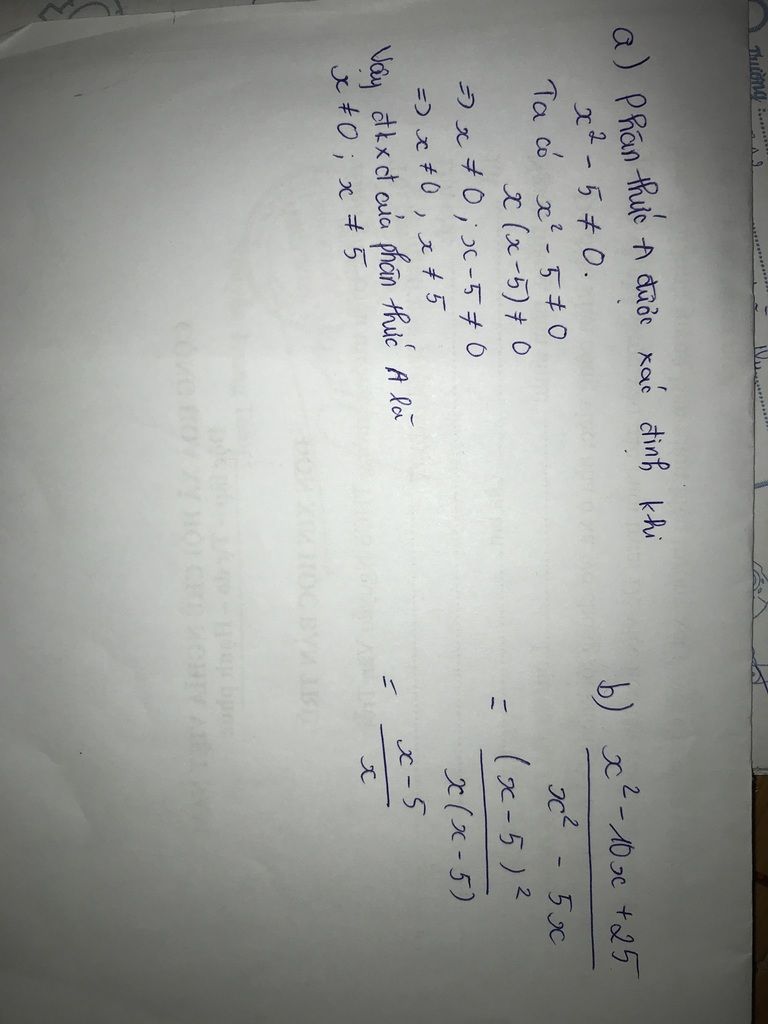 a) Phân thức A được xác định khi
x² - 5 ≠ 0.
Ta có x² - 5 ≠ 0
x(x-5) ≠ 0
=> x ≠ 0 ; x - 5 ≠ 0
=> x ≠ 0 ; x ≠ 5
Vậy đkxđ của phân thức A là
x ≠ 0 ; x ≠ 5
b) x² - 10x + 25
x² - 5x
= (x - 5)²
x(x - 5)
= x - 5
x